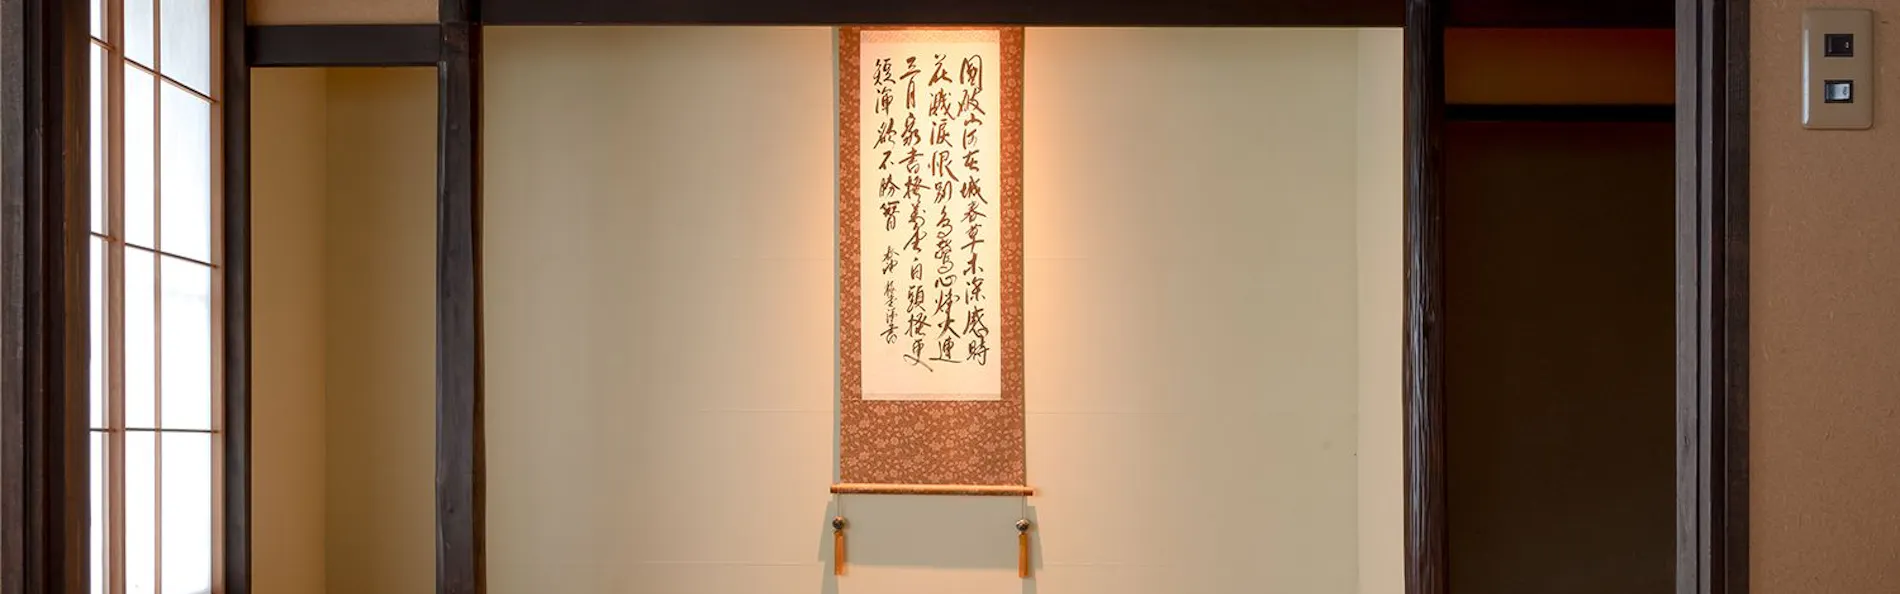 國破山河在城春草木深感時
花濺涙恨別鳥驚心烽火連
三月家書抵萬金白頭搔更
短渾欲不勝簪